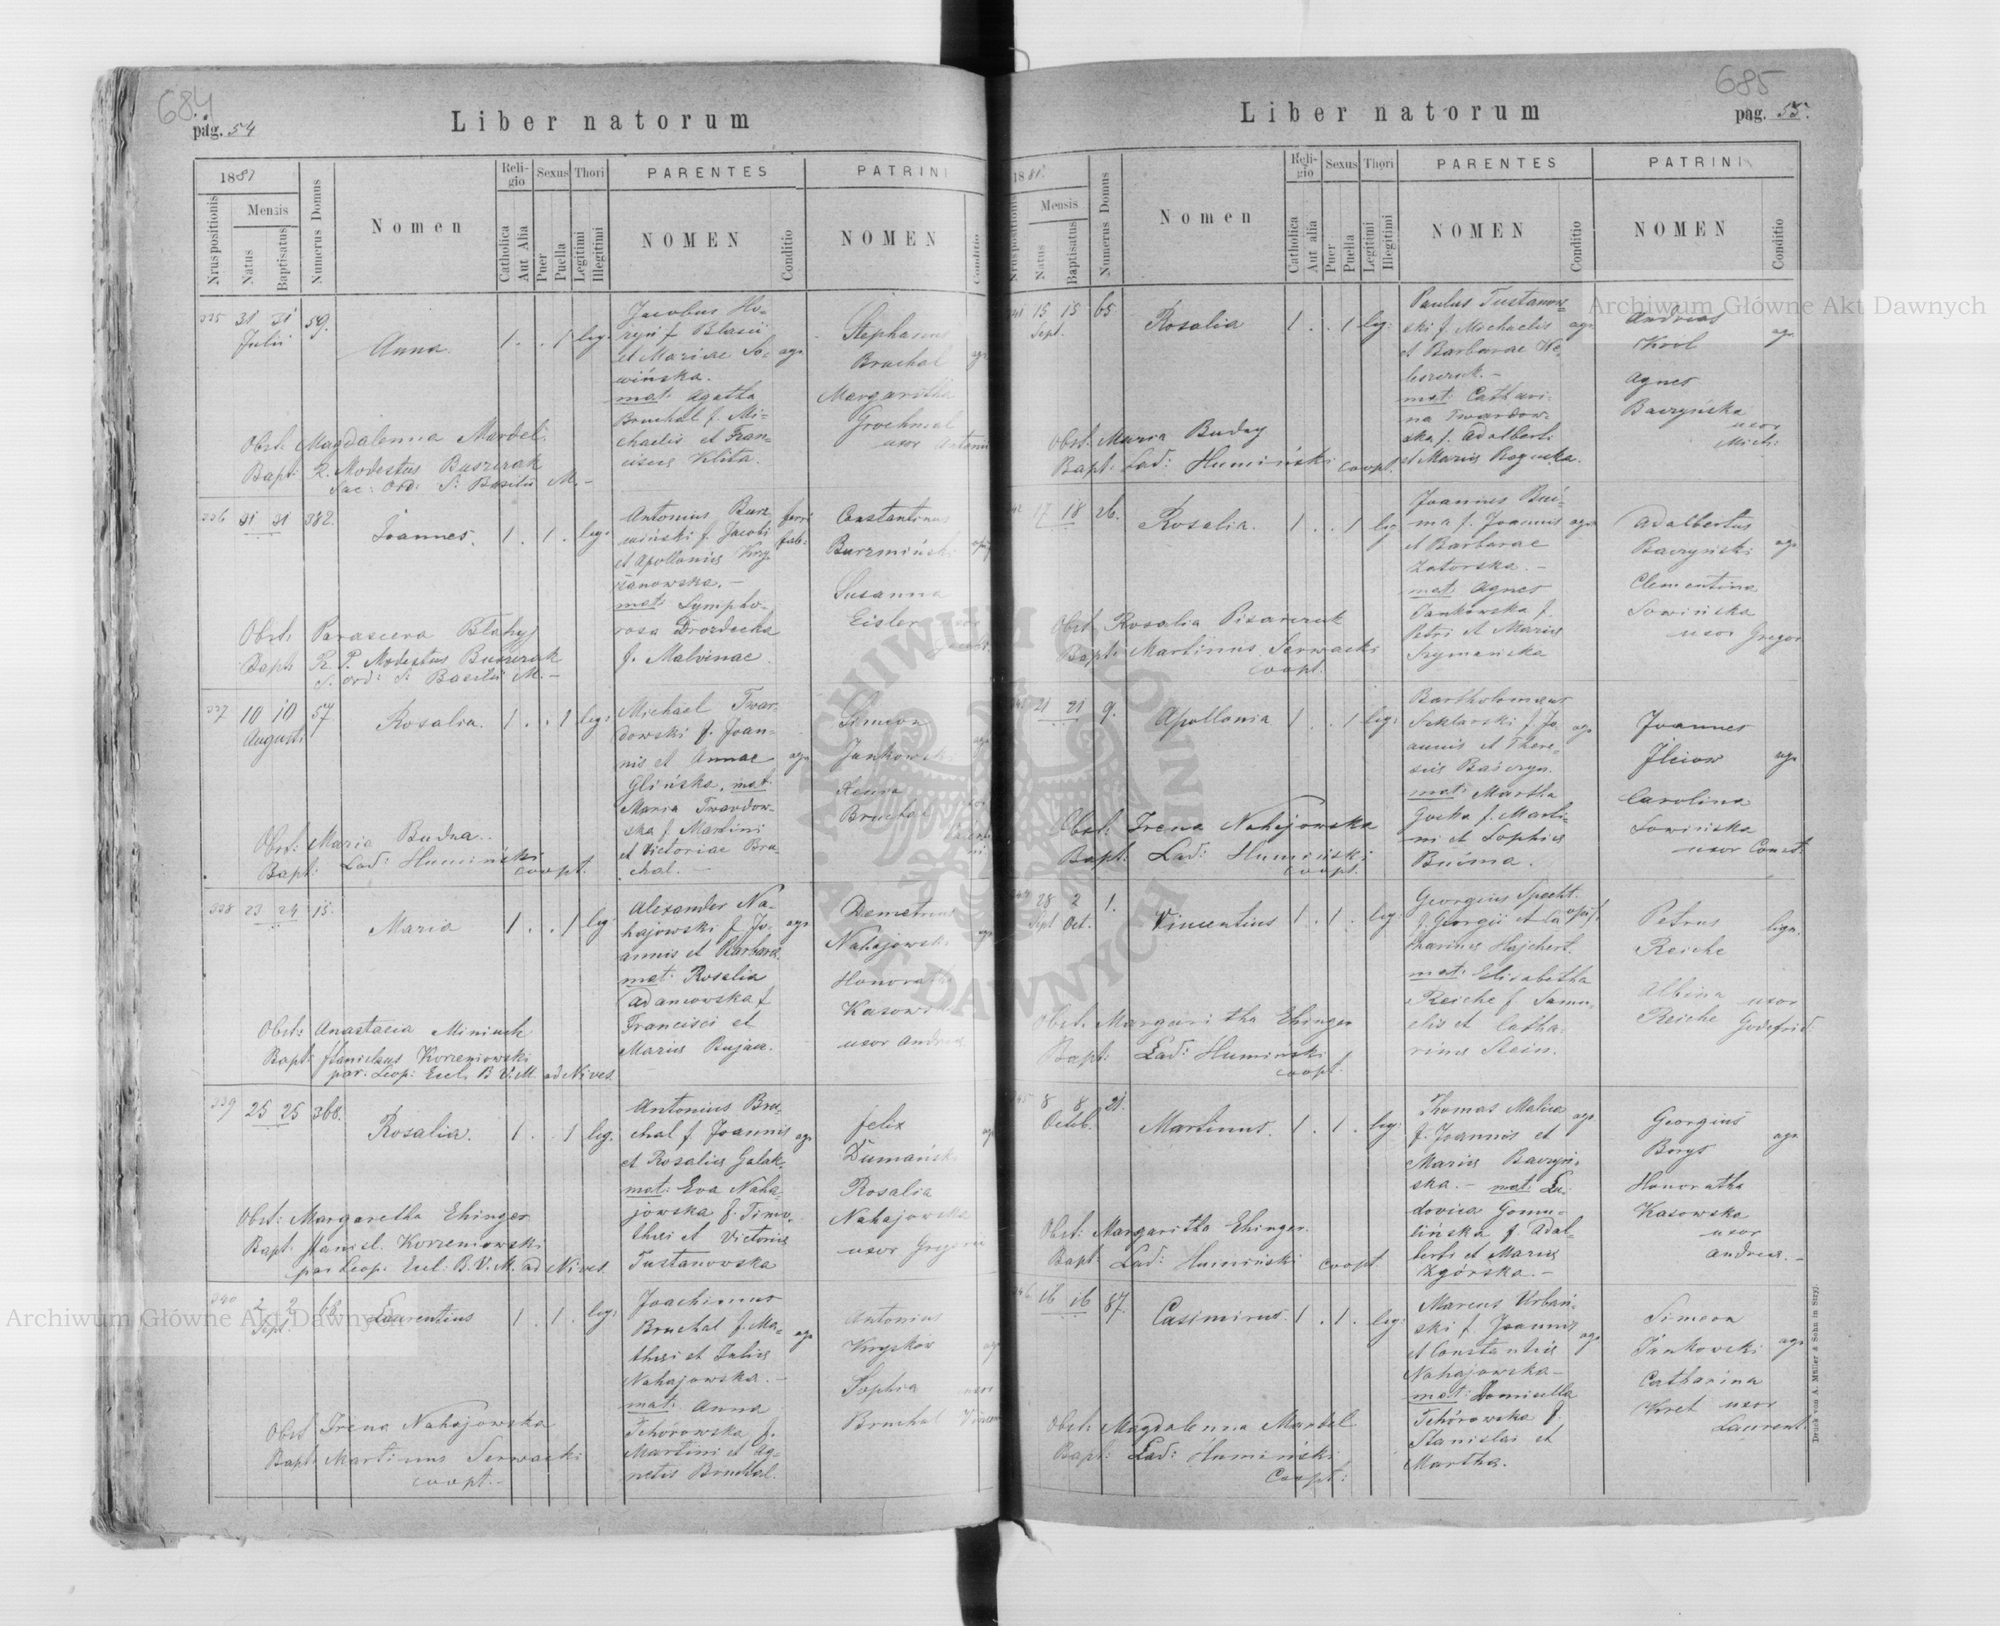 684
pag. 54
Liber natorum
1881
Mensis
Nrus positionis
Natus
Baptisatus
Numerus Domus
Nomen
Religio
Catholica
Aut Alia
Sexus
Puer
Puella
Thori
Legitimi
Illegitimi
PARENTES
NOMEN
Conditio
PATRINI
NOMEN
Conditio
225 31 31 59.
Julii
Anna
1 . . 1 leg:
Jacobus Ho-
f. Blasii
et Mariae So-
wińska.
mat: Agatha
Bruchal f. Mi-
chaelis et Fran-
cisca Klita.
agr
Stephanus
Bruchal
Margaritha
Grochmal
uxor Antonii
Obst: Magdalenna Mardel.
Bapt: R. Modestus Buszczak
Sac: Ord: S: Basilii M. –
226 31 31 382.
Joannes.
1 . 1 . leg:
Antonius Burz-
miński f. Jacobi
et Apolloniae Krzy-
żanowska. –
mat: Sympho-
rosa Drozdecka
f. Malvinae
ferri
fab:
Constantinus
Burzmiński
Susanna
Eisler
Obst: Parasceva Blahyj
Bapt: R. P. Modestus Buszczak
S. Ord: S: Basilii M. –
227 10 10 57
Augusti
Rosalia.
1 . . 1 leg:
Michael Twar-
dowski f. Joan-
nis et Annae
Glińska, mat:
Maria Twardow-
ska f. Martini
et Victoriae Bru-
chal. –
agr
Simeon
Jankowski
Xenia
Bruchal
Obst: Maria Budna.
Bapt: Lad: Humiński
coopt.
228 23 24 15.
Maria
1 . . 1 leg
Alexander Na-
hajowski f. Jo-
annis et Barbara
mat: Rosalia
Adamowska f.
Francisci et
Maria Bujacz.
agr
Demetrius
Nahajowski
Honorata
Kasowska
uxor Andreae
Obst: Anastacia Miniuch
Bapt: Stanislaus Korzeniowski
par: Leop: Eccl. B. V. M. ad Nives.
229 25 25 368.
Rosalia.
1 . . 1 leg.
Antonius Bru-
chal f. Joannis
et Rosaliae Galak.
mat: Eva Naha-
jowska f. Timo-
thei et Victoria
Tustanowska
agr
Felix
Dumański
Rosalia
Nahajowska
uxor Gregorii
Obst: Margaretha Ehinger
Bapt: Stanisl. Korzeniowski
par Leop: Eccl. B. V. M. ad Nives.
240 2 2
Sept.
Laurentius
1 . 1 . leg:
Joachimus
Bruchal f. Ma-
thei et Julia
Nahajowska. –
mat: Anna
Tchórowska f.
Martini et Ag-
netis Bruchal.
agr
Antonius
Kryskow
Sophia
Bruchal
Obst Irena Nahajowska
Bapt: Martinus Serwacki
coopt. –
685
pag. 55.
Liber natorum
1881.
Mensis
Nrus positionis
Natus
Baptisatus
Numerus Domus
Nomen
Religio
Catholica
Aut alia
Sexus
Puer
Puella
Thori
Legitimi
Illegitimi
PARENTES
NOMEN
Conditio
PATRINI
NOMEN
Conditio
241 15 15 65.
Sept.
Rosalia
1 . . 1 leg:
Paulus Tustanow-
ski f. Michaelis
et Barbarae
mat: Cathari-
na Twardow-
ska f. Adalberti
et Maria Rogowska.
agr
Andreas
Krol
Agnes
Baczyńska
uxor
Mich:
agr
Obst: Maria Budny
Bapt: Lad: Humiński coopt.
17 18 26.
Rosalia.
1 . . 1 leg
Joannes Buć-
ma f. Joannis
et Barbarae
Zatorska. –
mat: Agnes
Jankowska f.
Petri et Maria
Szymańska
agr
Adalbertus
Baczyński
Clementina
Sowińska
uxor Gregor
agr
Obst: Rosalia Pisarczuk
Bapt: Martinus Serwacki
coopt.
21 21 9.
Apollonia
1 . . 1 leg:
Bartholomaeus
Szklarski f. Jo-
annis et There-
sia Baczyn.
mat: Martha
Gocka f. Marti-
ni et Sophia
Bućma.
agr
Joannes
Ilciow
Carolina
Sowińska
uxor Const.
agr
Obst: Irena Nahajowska
Bapt: Lad: Humiński
coopt.
28 2 1.
Sept Oct.
Vincentius
1 . 1 . leg
Georgius Specht
f. Georgii et Ca-
tharina Hajchert.
mat: Elisabetha
Reiche f. Samu-
elis et Catha-
rina Stein.
opif.
Petrus
Reiche
Albina uxor
Reiche Godefrid.
Obst: Margaritha Ehinger
Bapt: Lad: Humiński
coopt.
8 8 21.
Octob.
Martinus.
1 . 1 . leg:
Thomas Malica
f. Joannis et
Maria Baczyń-
ska. – mat: Lu-
dovica Gomu-
lińska f. Adal-
berti et Maria
Zgórska. –
agr
Georgius
Borys
Honoratha
Kasowska
uxor
Andreae. –
agr
Obst: Margaritha Ehinger.
Bapt: Lad: Humiński coopt
246 16 16 87.
Casimirus.
1 . 1 . leg:
Marcus Urbań-
ski f. Joannis
et Constantia
Nahajowska –
mat: Domicella
Tchórowska f.
Stanislai et
Martha.
agr
Simeon
Jankowski
Catharina
Kret uxor
Laurent.
agr
Obst: Magdalenna Mardel
Bapt: Lad: Humiński
Coopt:
Druck von A. Müller & Sohn in Stryj.
Archiwum Główne Akt Dawnych
Archiwum Główne Akt Dawnych
ARCHIWUM GŁÓWNE AKT DAWNYCH